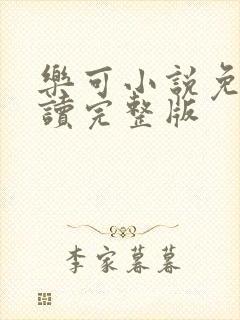 樂可小說免
讀完整版
李家暮暮